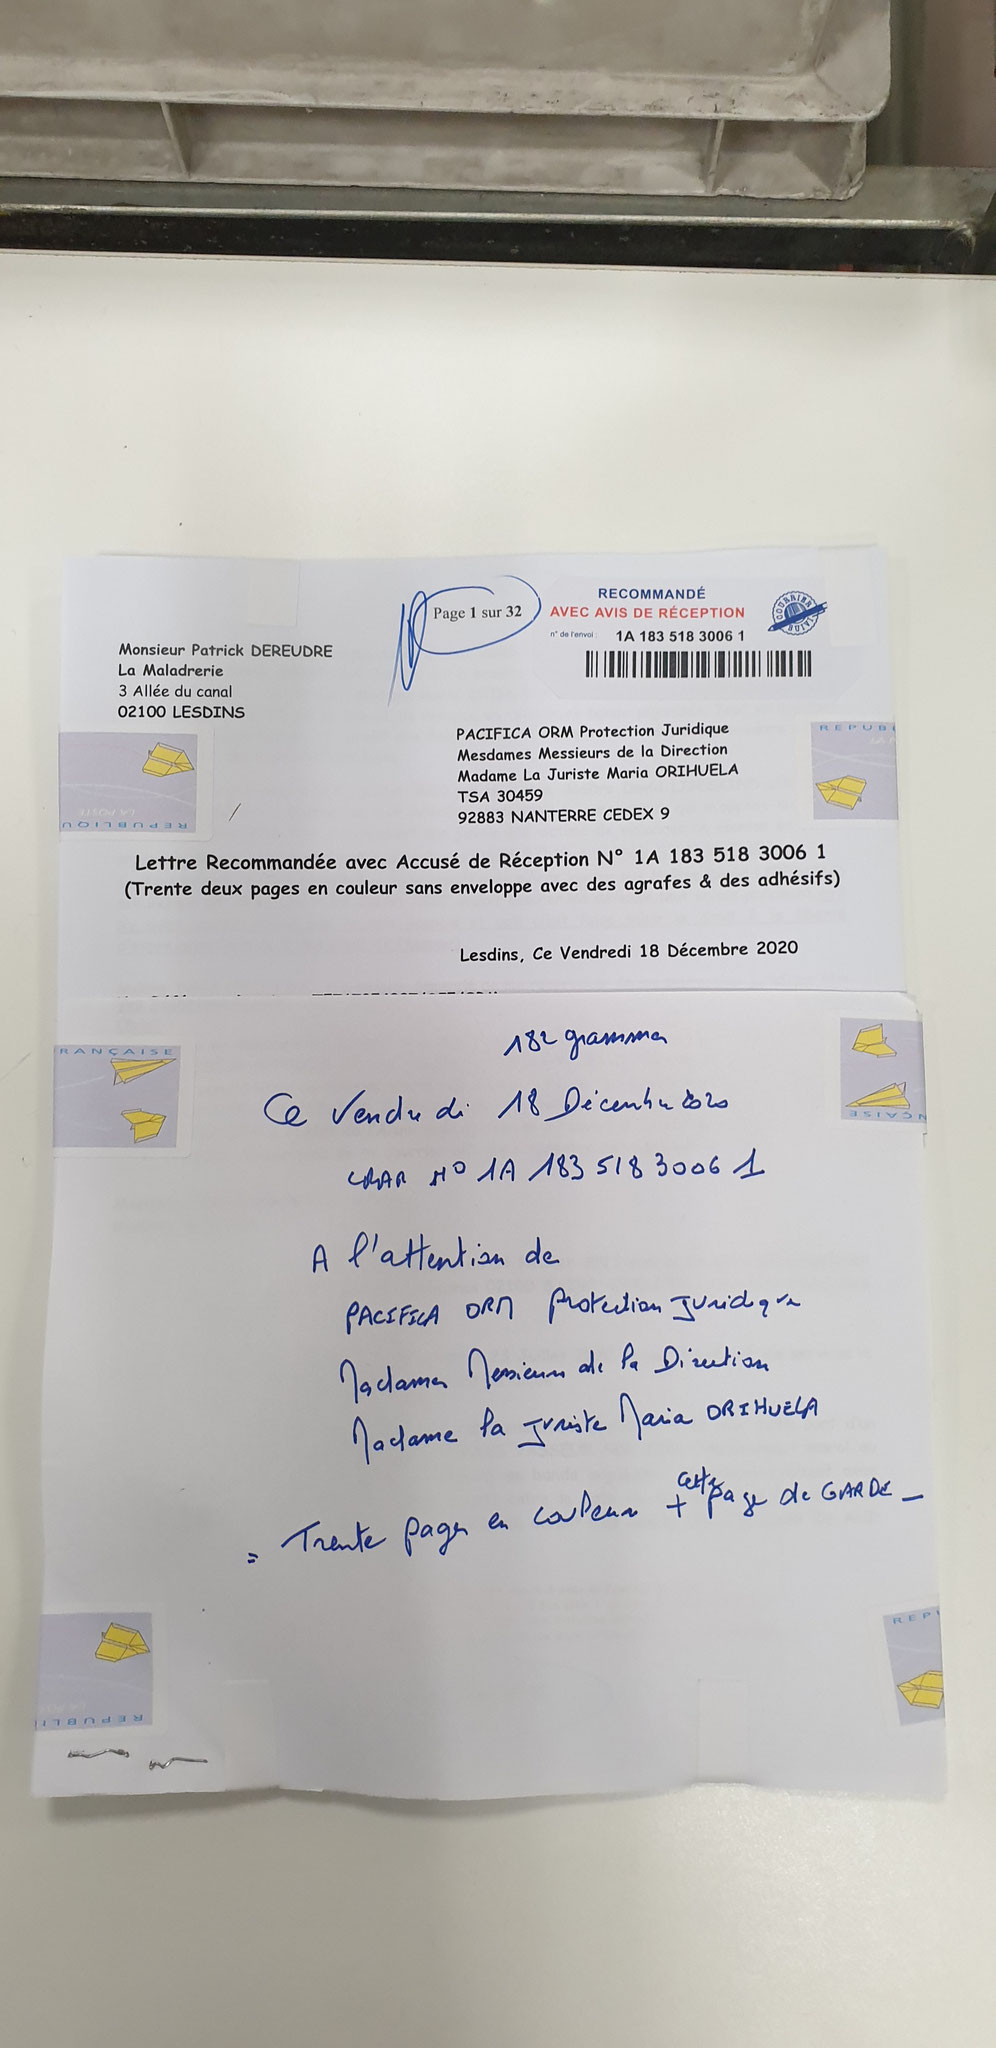 Page 1 sur 32
RECOMMANDÉ
AVEC AVIS DE RÉCEPTION
n° de l'envoi : 1A 183 518 3006 1
Monsieur Patrick DEREUDRE
La Maladrerie
3 Allée du canal
02100 LESDINS
PACIFICA ORM Protection Juridique
Mesdames Messieurs de la Direction
Madame La Juriste Maria ORIHUELA
TSA 30459
92883 NANTERRE CEDEX 9
REPUB
LA POSTE
REPUBLIQU
Lettre Recommandée avec Accusé de Réception N° 1A 183 518 3006 1
(Trente deux pages en couleur sans enveloppe avec des agrafes & des adhésifs)
Lesdins, Ce Vendredi 18 Décembre 2020
182 grammes
RANÇAISE
NÇAISE
Ce Vendredi 18 Décembre 2020
LRAR N° 1A 183 518 3006 1
A l'attention de
PACIFICA ORM Protection Juridique
Mesdames Messieurs de la Direction
Madame la Juriste Maria ORIHUELA
= Trente pages en couleurs + cette page de GARDE _
REP
REPUBLI